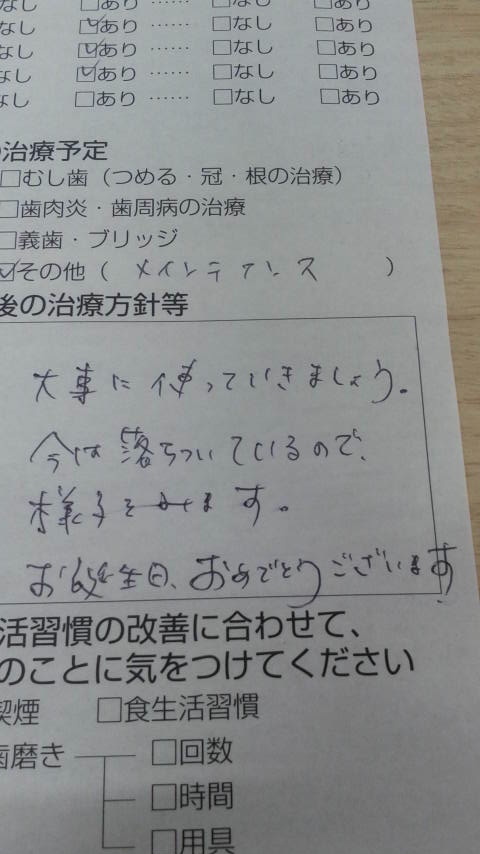 なし ☐あり …… ☐なし ☐あり
なし ☑あり …… ☐なし ☐あり
なし ☑あり …… ☐なし ☐あり
なし ☑あり …… ☐なし ☐あり
なし ☐あり …… ☐なし ☐あり
の治療予定
☐むし歯（つめる・冠・根の治療）
☐歯肉炎・歯周病の治療
☐義歯・ブリッジ
☑その他（ メインテナンス ）
後の治療方針等
大事に使っていきましょう。
今は落ちついているので、
様子をみます。
お誕生日、おめでとうございます
活習慣の改善に合わせて、
のことに気をつけてください
喫煙 ☐食生活習慣
歯磨き ☐回数
☐時間
☐用具